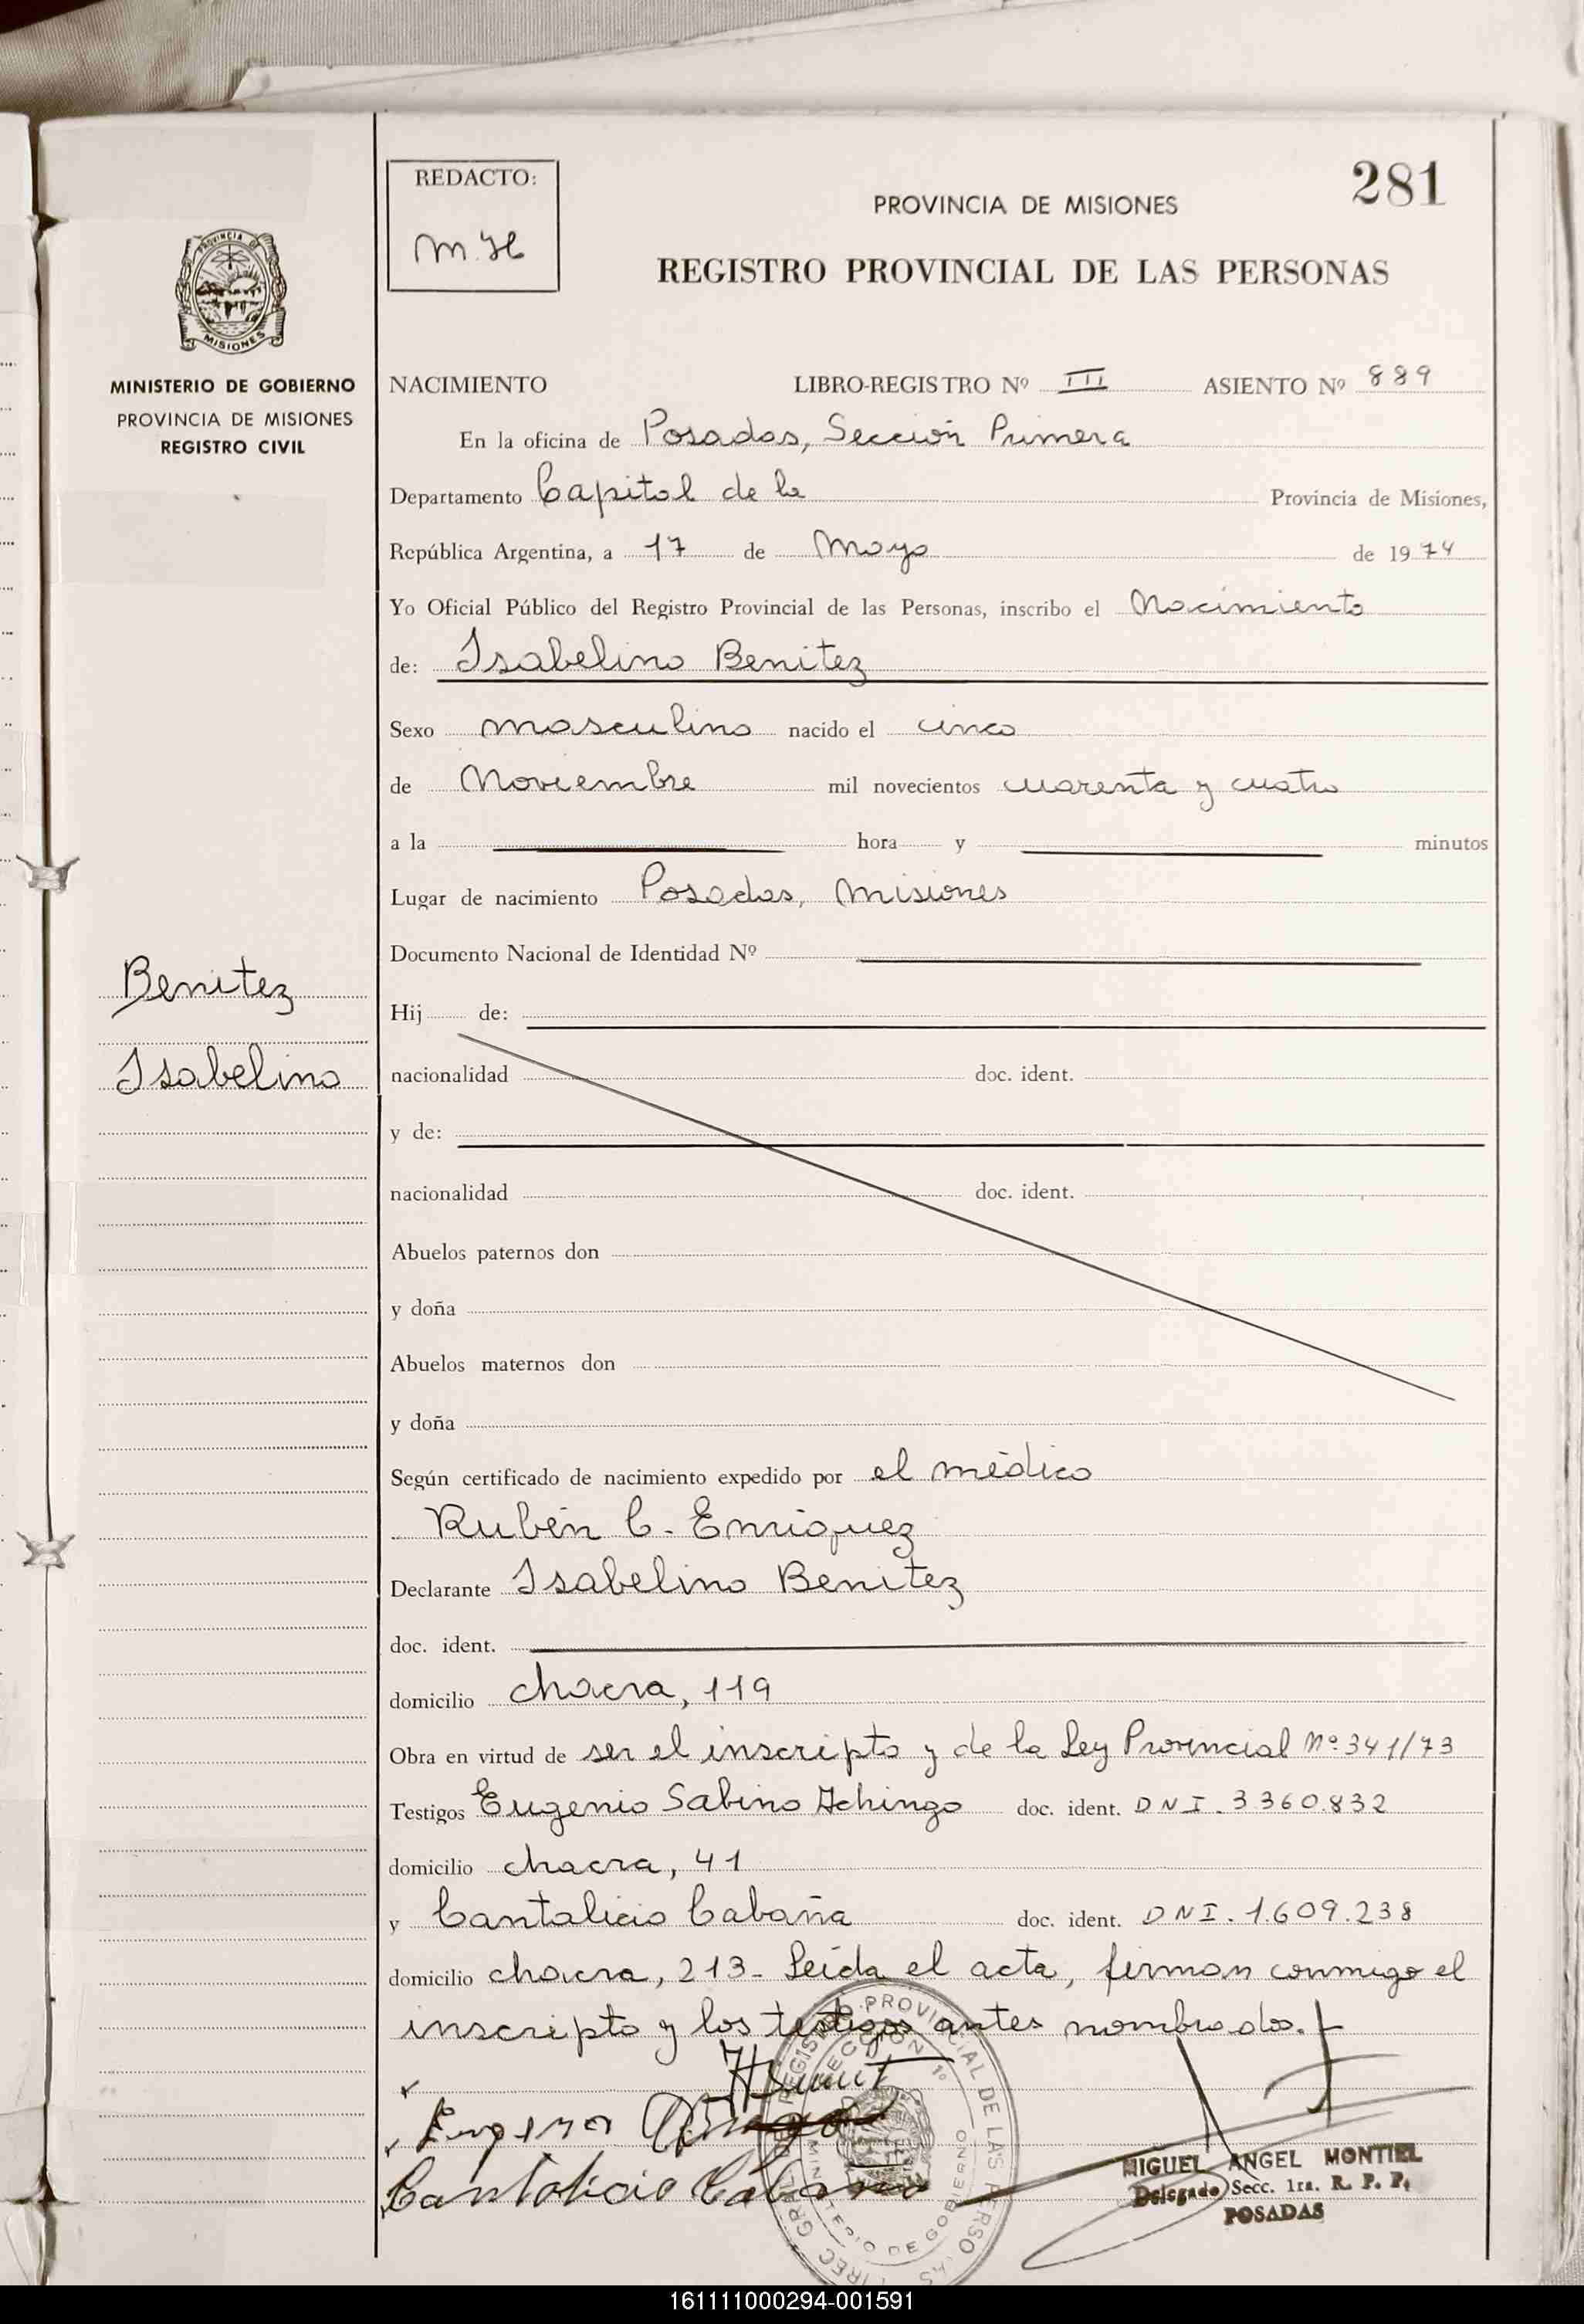 281
REDACTO:
M.H
PROVINCIA DE MISIONES
REGISTRO PROVINCIAL DE LAS PERSONAS
PROVINCIA DE
MISIONES
MINISTERIO DE GOBIERNO
PROVINCIA DE MISIONES
REGISTRO CIVIL
NACIMIENTO LIBRO-REGISTRO Nº III ASIENTO Nº 889
En la oficina de Posadas, Sección Primera
Departamento Capital de la Provincia de Misiones,
República Argentina, a 17 de Mayo de 1974
Yo Oficial Público del Registro Provincial de las Personas, inscribo el Nacimiento
de: Isabelino Benitez
Sexo masculino nacido el cinco
de Noviembre mil novecientos cuarenta y cuatro
a la hora y minutos
Lugar de nacimiento Posadas, Misiones
Documento Nacional de Identidad Nº
Benitez
Isabelino
Hij de:
nacionalidad doc. ident.
y de:
nacionalidad doc. ident.
Abuelos paternos don
y doña
Abuelos maternos don
y doña
Según certificado de nacimiento expedido por el médico
Rubén C. Enriquez
Declarante Isabelino Benitez
doc. ident.
domicilio chacra, 119
Obra en virtud de ser el inscripto y de la Ley Provincial Nº 341/73
Testigos Eugenio Sabino Achingo doc. ident. DNI. 3.360.832
domicilio chacra, 41
y Cantalicio Cabaña doc. ident. DNI. 1.609.238
domicilio chacra, 213- Leída el acta, firman conmigo el
inscripto y los testigos antes nombrados.
Cantalicio Cabana
MIGUEL ANGEL MONTIEL
Delegado Secc. 1ra. R. P. P.
POSADAS
161111000294-001591